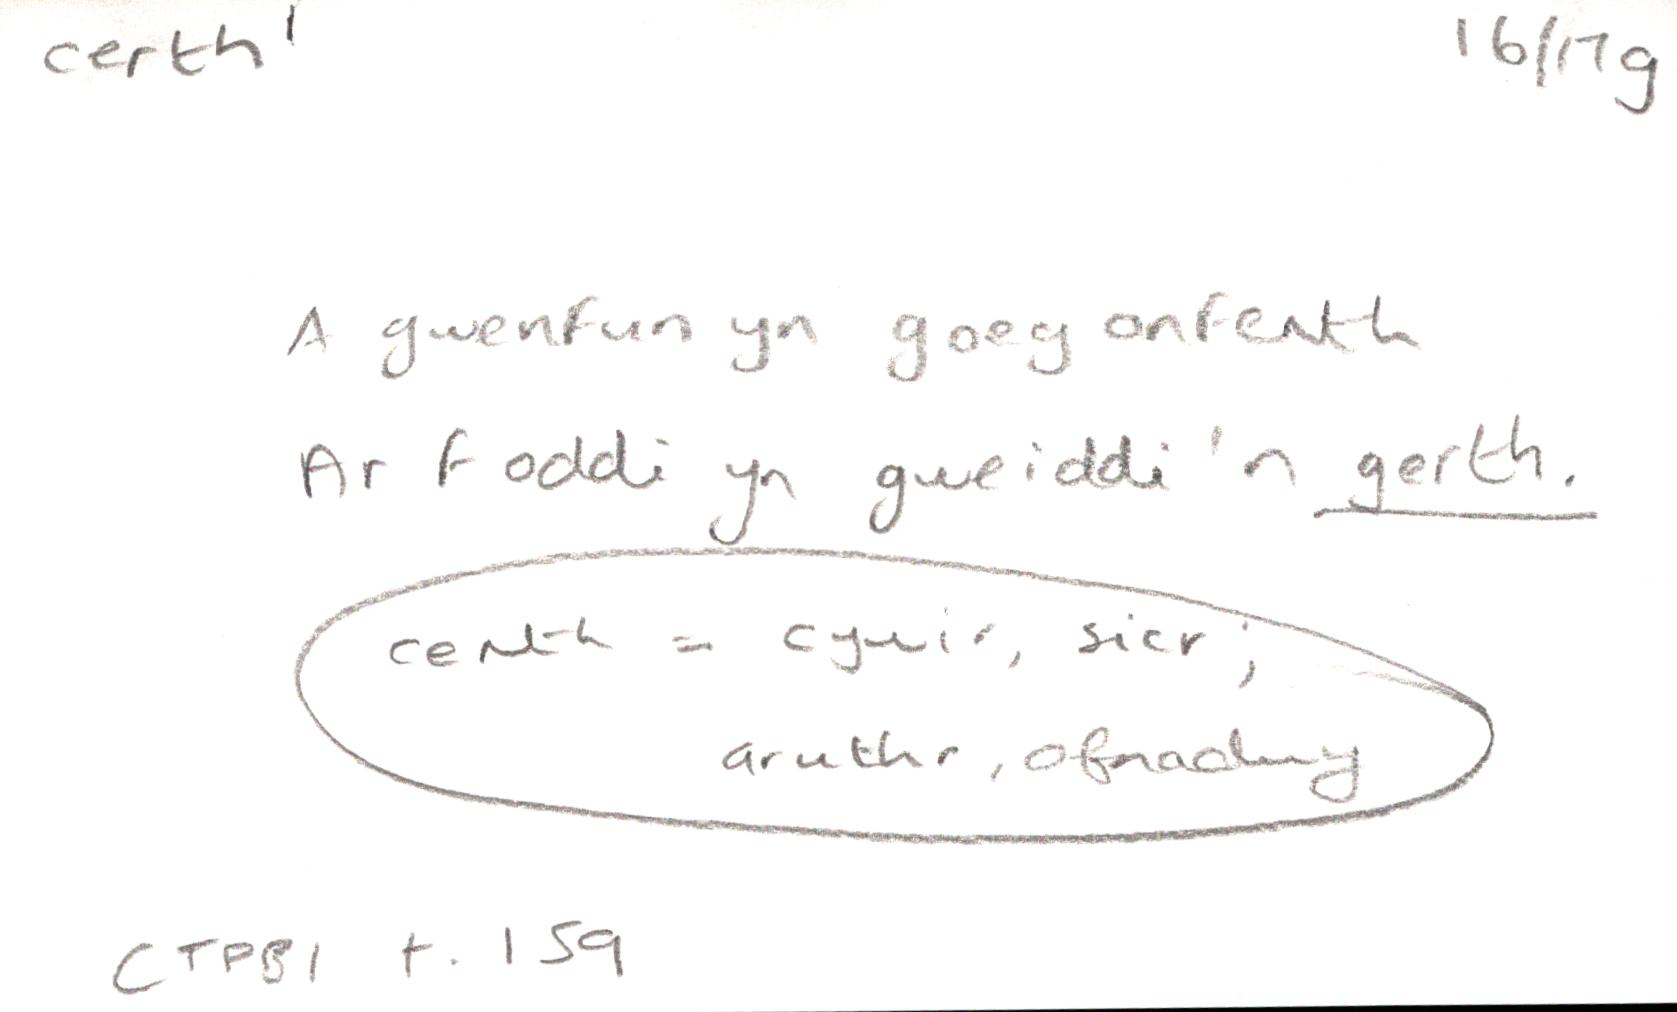 certh¹ 16/17g
A gwenfun yn goeg anferth
Ar foddi yn gweiddi'n gerth.
certh = cywir, sicr;
aruthr, ofnadwy
CTPB1 t. 159